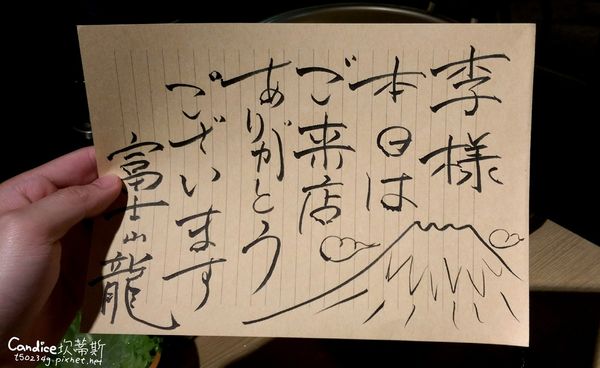 李様
本日は
ご来店
ありがとう
ございます
富士山龍
Candice坎蒂斯
t50234g.pixnet.net